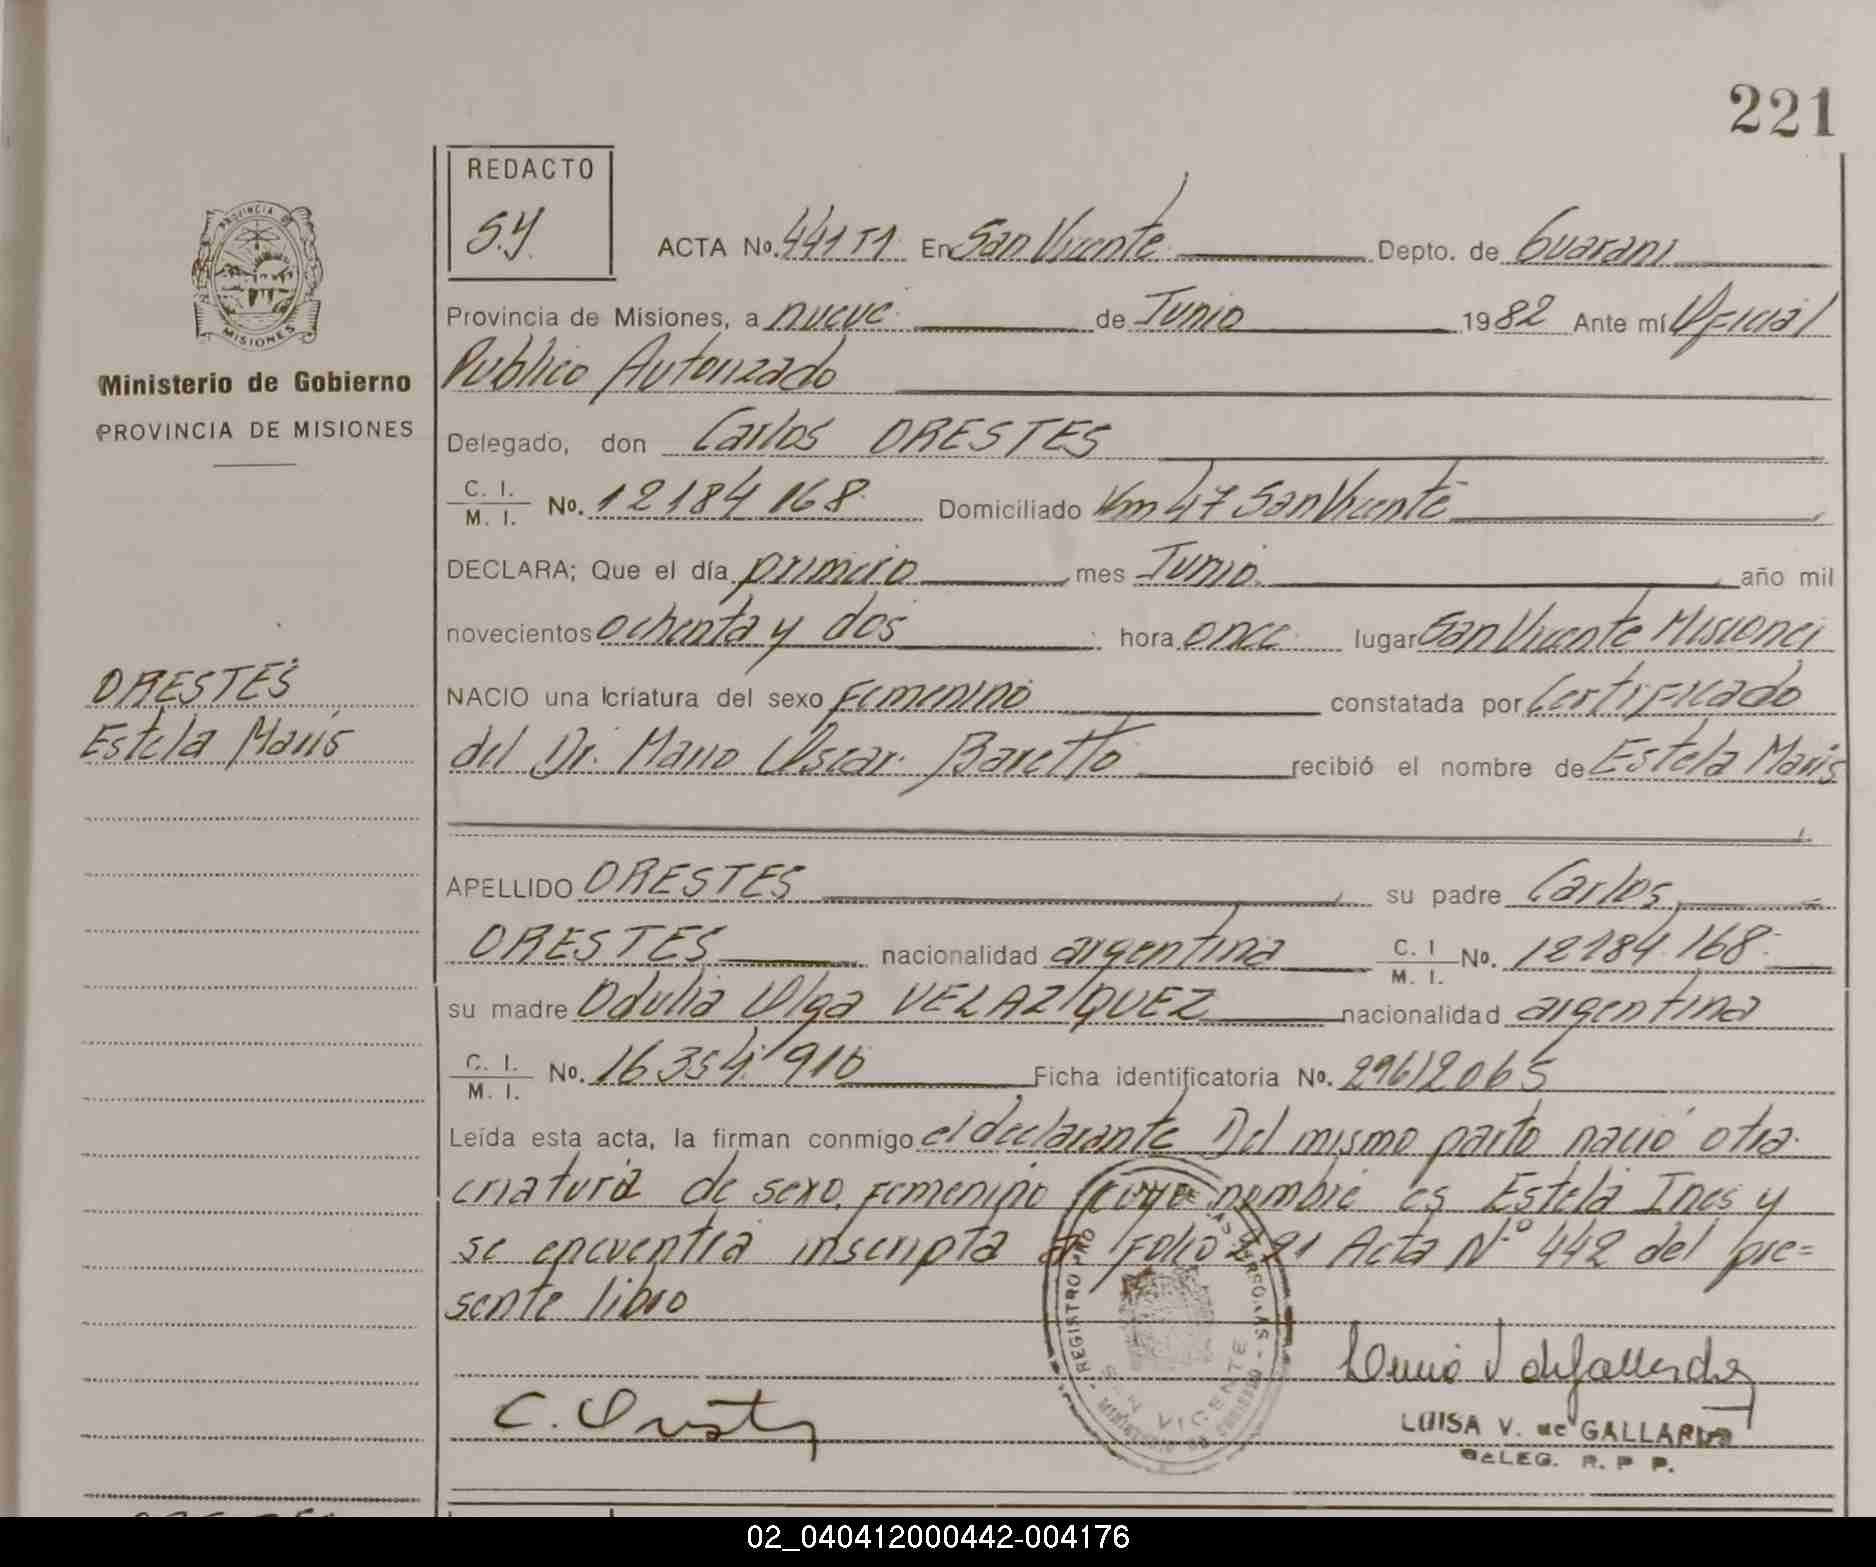 221
REDACTO
S.Y.
PROVINCIA DE
MISIONES
Ministerio de Gobierno
PROVINCIA DE MISIONES
ACTA No. 441 T1 En San Vicente Depto. de Guarani
Provincia de Misiones, a nueve de Junio 1982 Ante mí Oficial
Publico Autorizado
Delegado, don Carlos ORESTES
C. I. M. I. No. 12184168 Domiciliado Km 47 San Vicente
DECLARA; Que el día primero mes Junio año mil
novecientos ochenta y dos hora once lugar San Vicente Misiones
ORESTES
Estela Maris
NACIO una criatura del sexo Femenino constatada por Certificado
del Dr. Mario Oscar Baretto recibió el nombre de Estela Maris
APELLIDO ORESTES su padre Carlos
ORESTES nacionalidad argentina C. I M. I. No. 12184.168
su madre Odulia Olga VELAZQUEZ nacionalidad argentina
C. I. M. I. No. 16354.910 Ficha identificatoria No. 29612065
Leída esta acta, la firman conmigo el declarante Del mismo parto nació otra
criatura de sexo Femenino cuyo nombre es Estela Ines y
se encuentra inscripta a Folio 221 Acta Nº 442 del pre=
sente libro
SAN VICENTE
C. Orestes
LUISA V. de GALLARDO
DELEG. R. P. P.
02_040412000442-004176